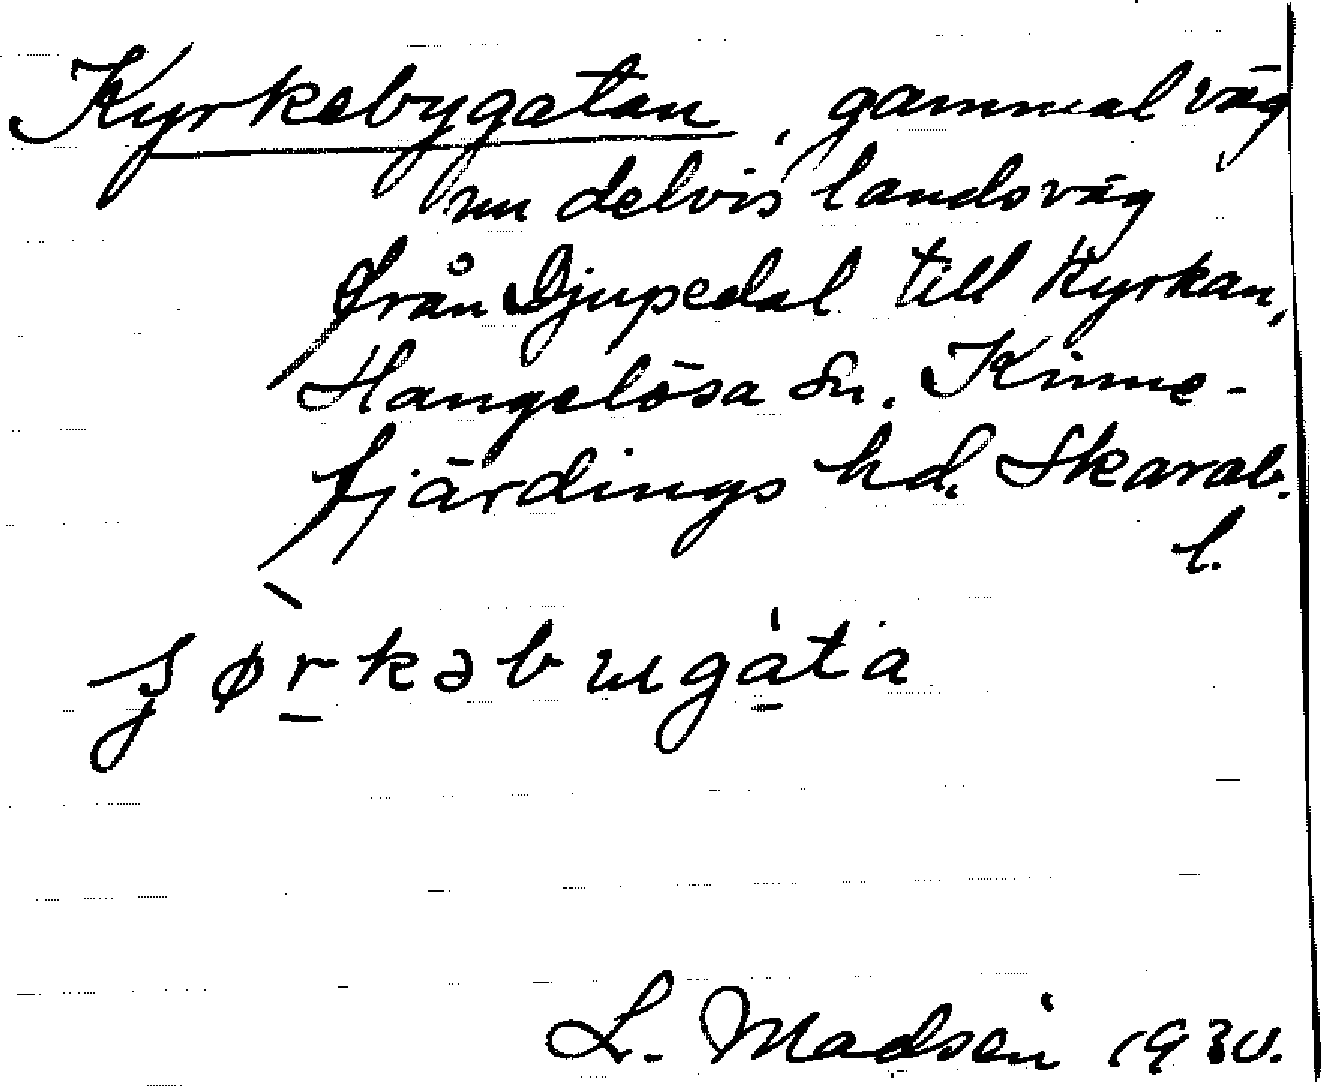 Kyrkebygatan, gammal väg
nu delvis landsväg
från Djupedal till kyrkan,
Hangelösa sn. Kinne-
fjärdings hd. Skarab.
l.
L. Madsén 1930.